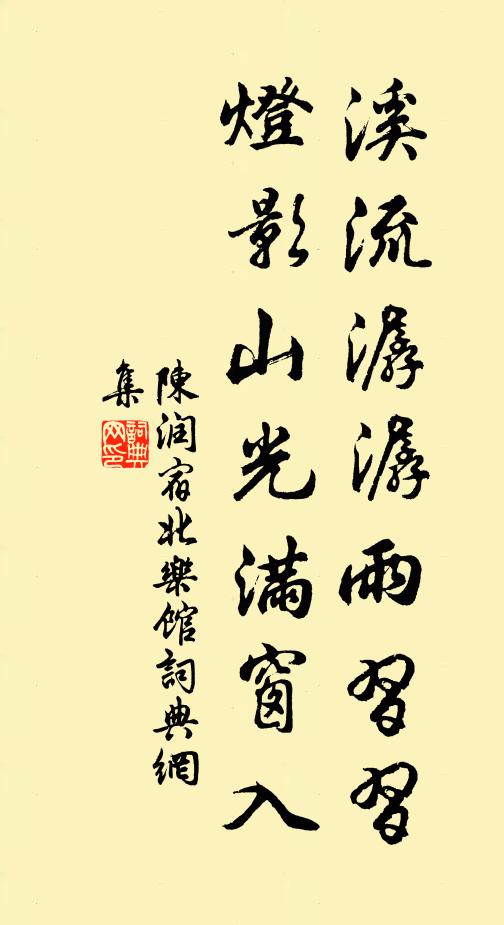 溪流潺潺雨習習
燈影山光滿窗入
陳润宿北樂館詞典網
集
詞典
网印